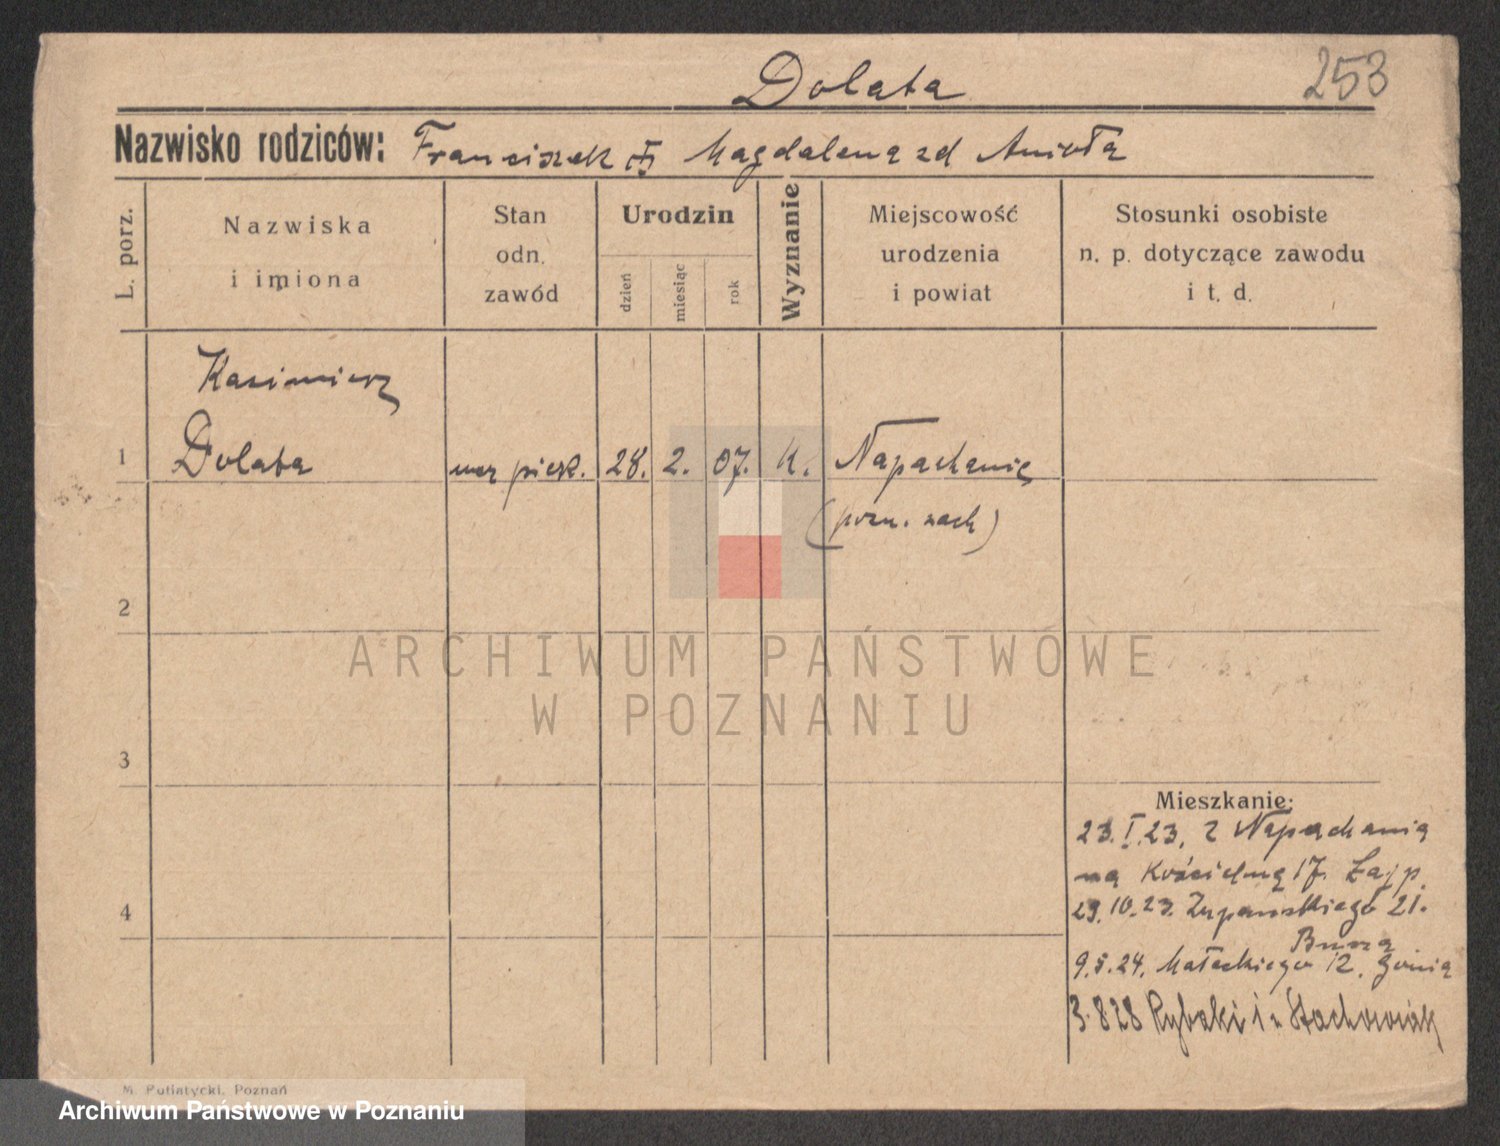 Dolata
253
Nazwisko rodziców: Franciszek Magdalena zd Anioła
L. porz.
Nazwiska
i imiona
Stan
odn.
zawód
Urodzin
dzień
miesiąc
rok
Wyznanie
Miejscowość
urodzenia
i powiat
Stosunki osobiste
n. p. dotyczące zawodu
i t. d.
Kazimierz
1 Dolata ucz piek. 28. 2. 07. K. Napachanie
(pozn. zach)
2
ARCHIWUM PAŃSTWOWE
W POZNANIU
3
Mieszkanie:
23.I.23. z Napachania
na Kościelną 17.
4
29.10.23. Żupańskiego 21.
9.5.24. Małeckiego 12.
3.828 Rybaki 1 Stachowiak
M. Putiatycki, Poznań
Archiwum Państwowe w Poznaniu